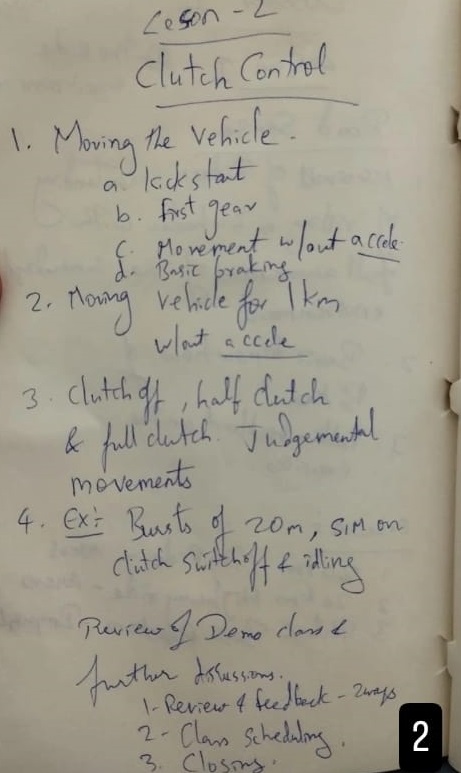 Leson - 2
Clutch Control
1. Moving the Vehicle.
a kick start
b. first gear
c. Movement w/out accele.
d. Basic braking
2. Moving vehicle for 1 km
w/out accele
3. Clutch off, half clutch
& full clutch. Judgemental
movements
4. Ex:- Bursts of 20m, SIM on
clutch switchoff & idling
Review of Demo class &
further discussions.
1- Review & feedback - 2ways
2- Class scheduling.
3. Closing.
2